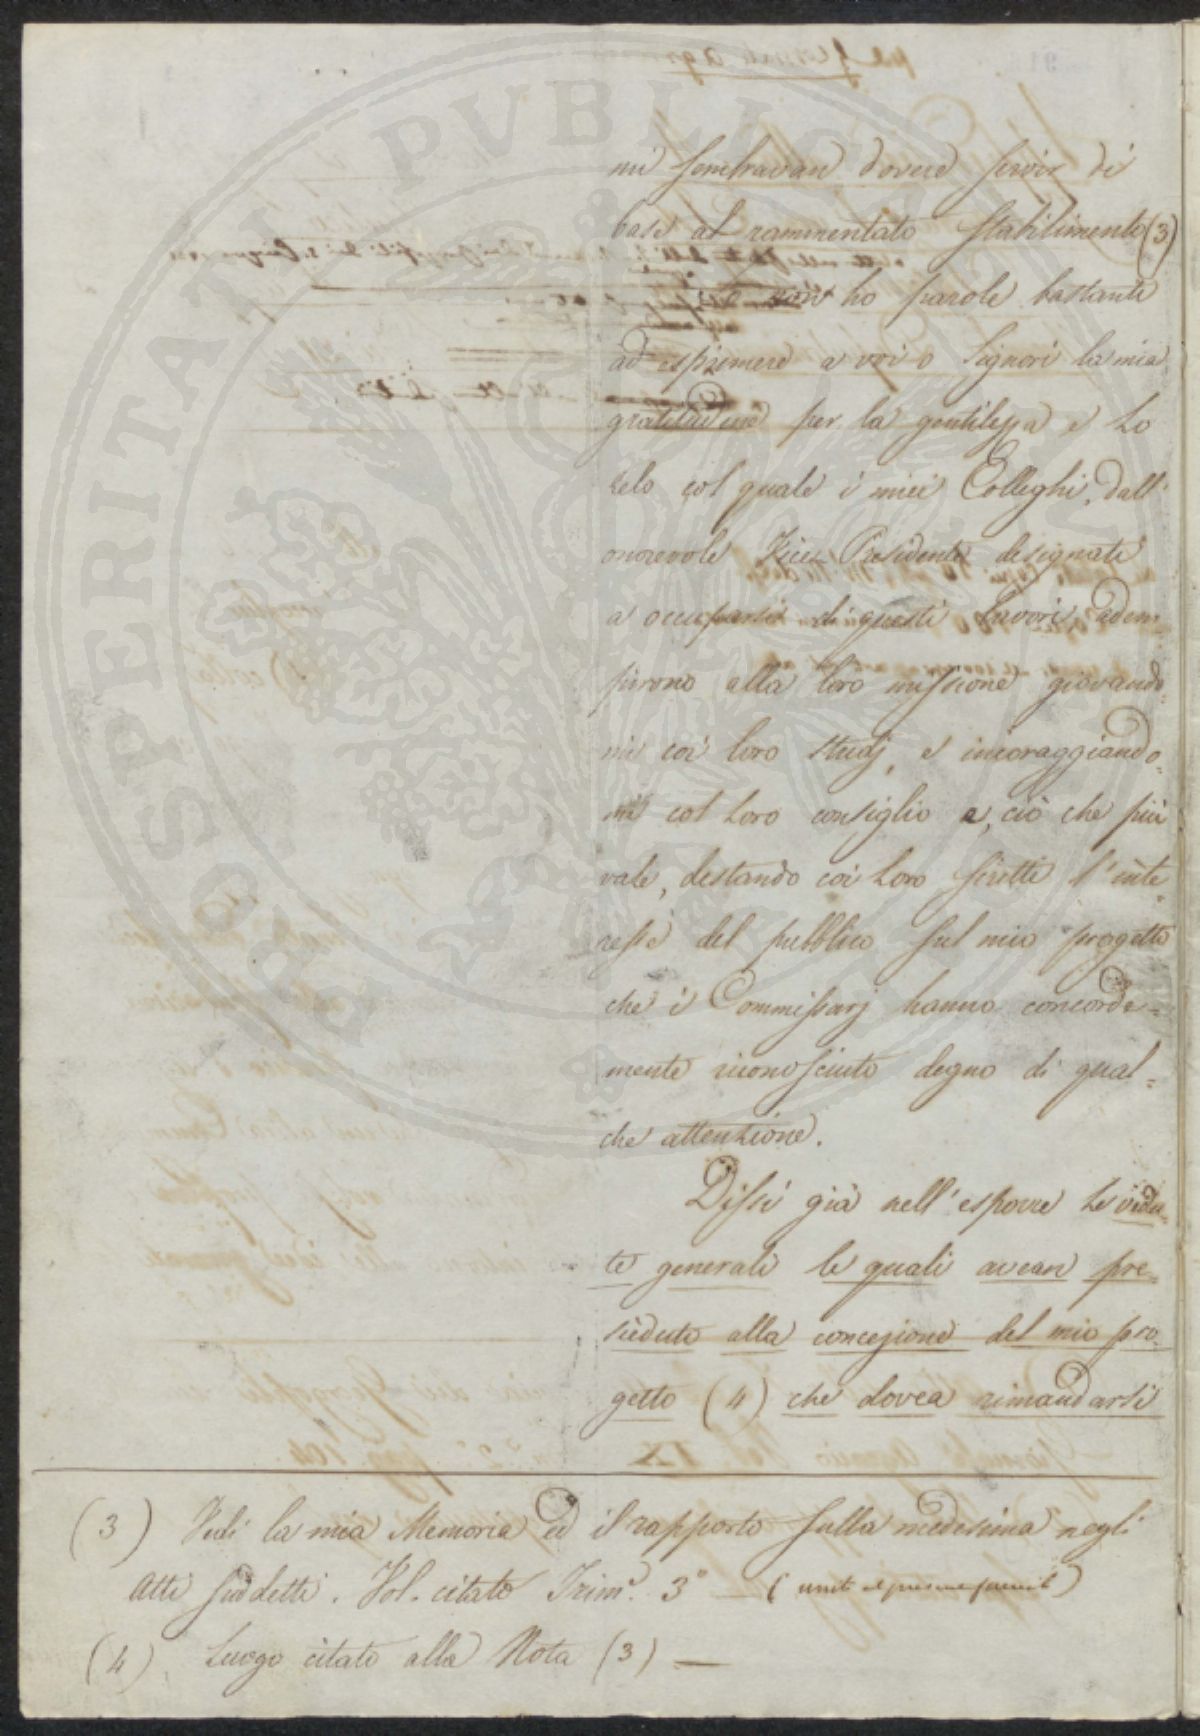 mi sembravan dovere servir di
base al rammentato stabilimento (3)
non ho parole bastanti
ad esprimere a voi o Signori la mia
gratitudine per la gentilezza e lo
zelo col quale i miei Colleghi, dall'
onorevole Vice-Presidente designati
a occuparsi di questi lavori adem-
pirono alla loro missione giovando-
mi coi loro studj, e incoraggiando-
mi col loro consiglio e, ciò che più
vale, destando coi loro scritti l'inte
resse del pubblico sul mio progetto
che i Commissarj hanno concorde-
mente riconosciuto degno di qual-
che attenzione.
Dissi già nell'esporre le vedu-
te generali le quali avean pre-
sieduto alla concezione del mio pro-
getto (4) che dovea rimandarsi
(3) Vedi la mia Memoria ed il rapporto sulla medesima negli
Atti suddetti. Vol. citato Trim. 3°
(4) Luogo citato alla Nota (3) —
PROSPERITATI PUBLICAE